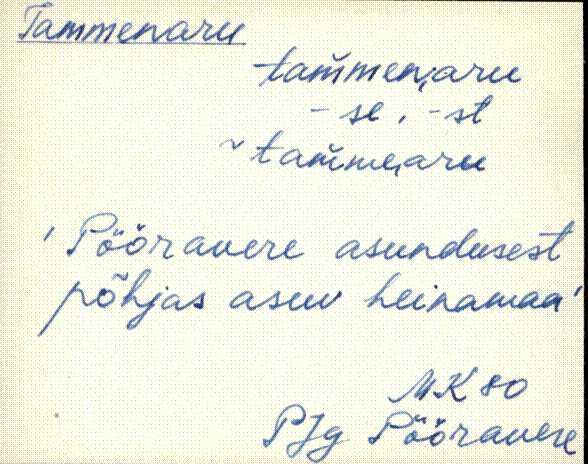 Tammenaru
tam̆men͔aru
-se, -st
~ tam̆me͔aru
'Pööravere asundusest
põhjas asuv heinamaa'
MK 80
PJg Pööravere